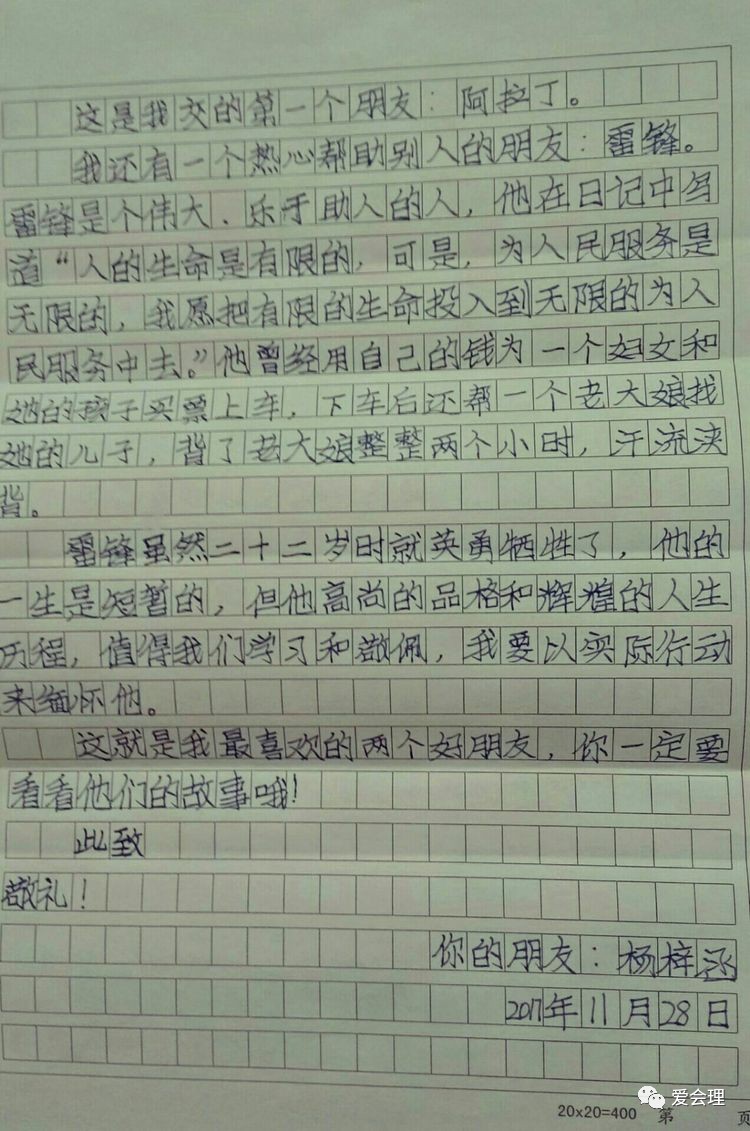 这是我交的第一个朋友：阿拉丁。
我还有一个热心帮助别人的朋友：雷锋。
雷锋是个伟大、乐于助人的人，他在日记中写
道“人的生命是有限的，可是，为人民服务是
无限的，我愿把有限的生命投入到无限的为人
民服务中去。”他曾经用自己的钱为一个妇女和
她的孩子买票上车，下车后还帮一个老大娘找
她的儿子，背了老大娘整整两个小时，汗流浃
背。
雷锋虽然二十二岁时就英勇牺牲了，他的
一生是短暂的，但他高尚的品格和辉煌的人生
历程，值得我们学习和敬佩，我要以实际行动
来缅怀他。
这就是我最喜欢的两个好朋友，你一定要
看看他们的故事哦！
此致
敬礼！
你的朋友：杨梓涵
2017年11月28日
20x20=400 第 页
爱会理